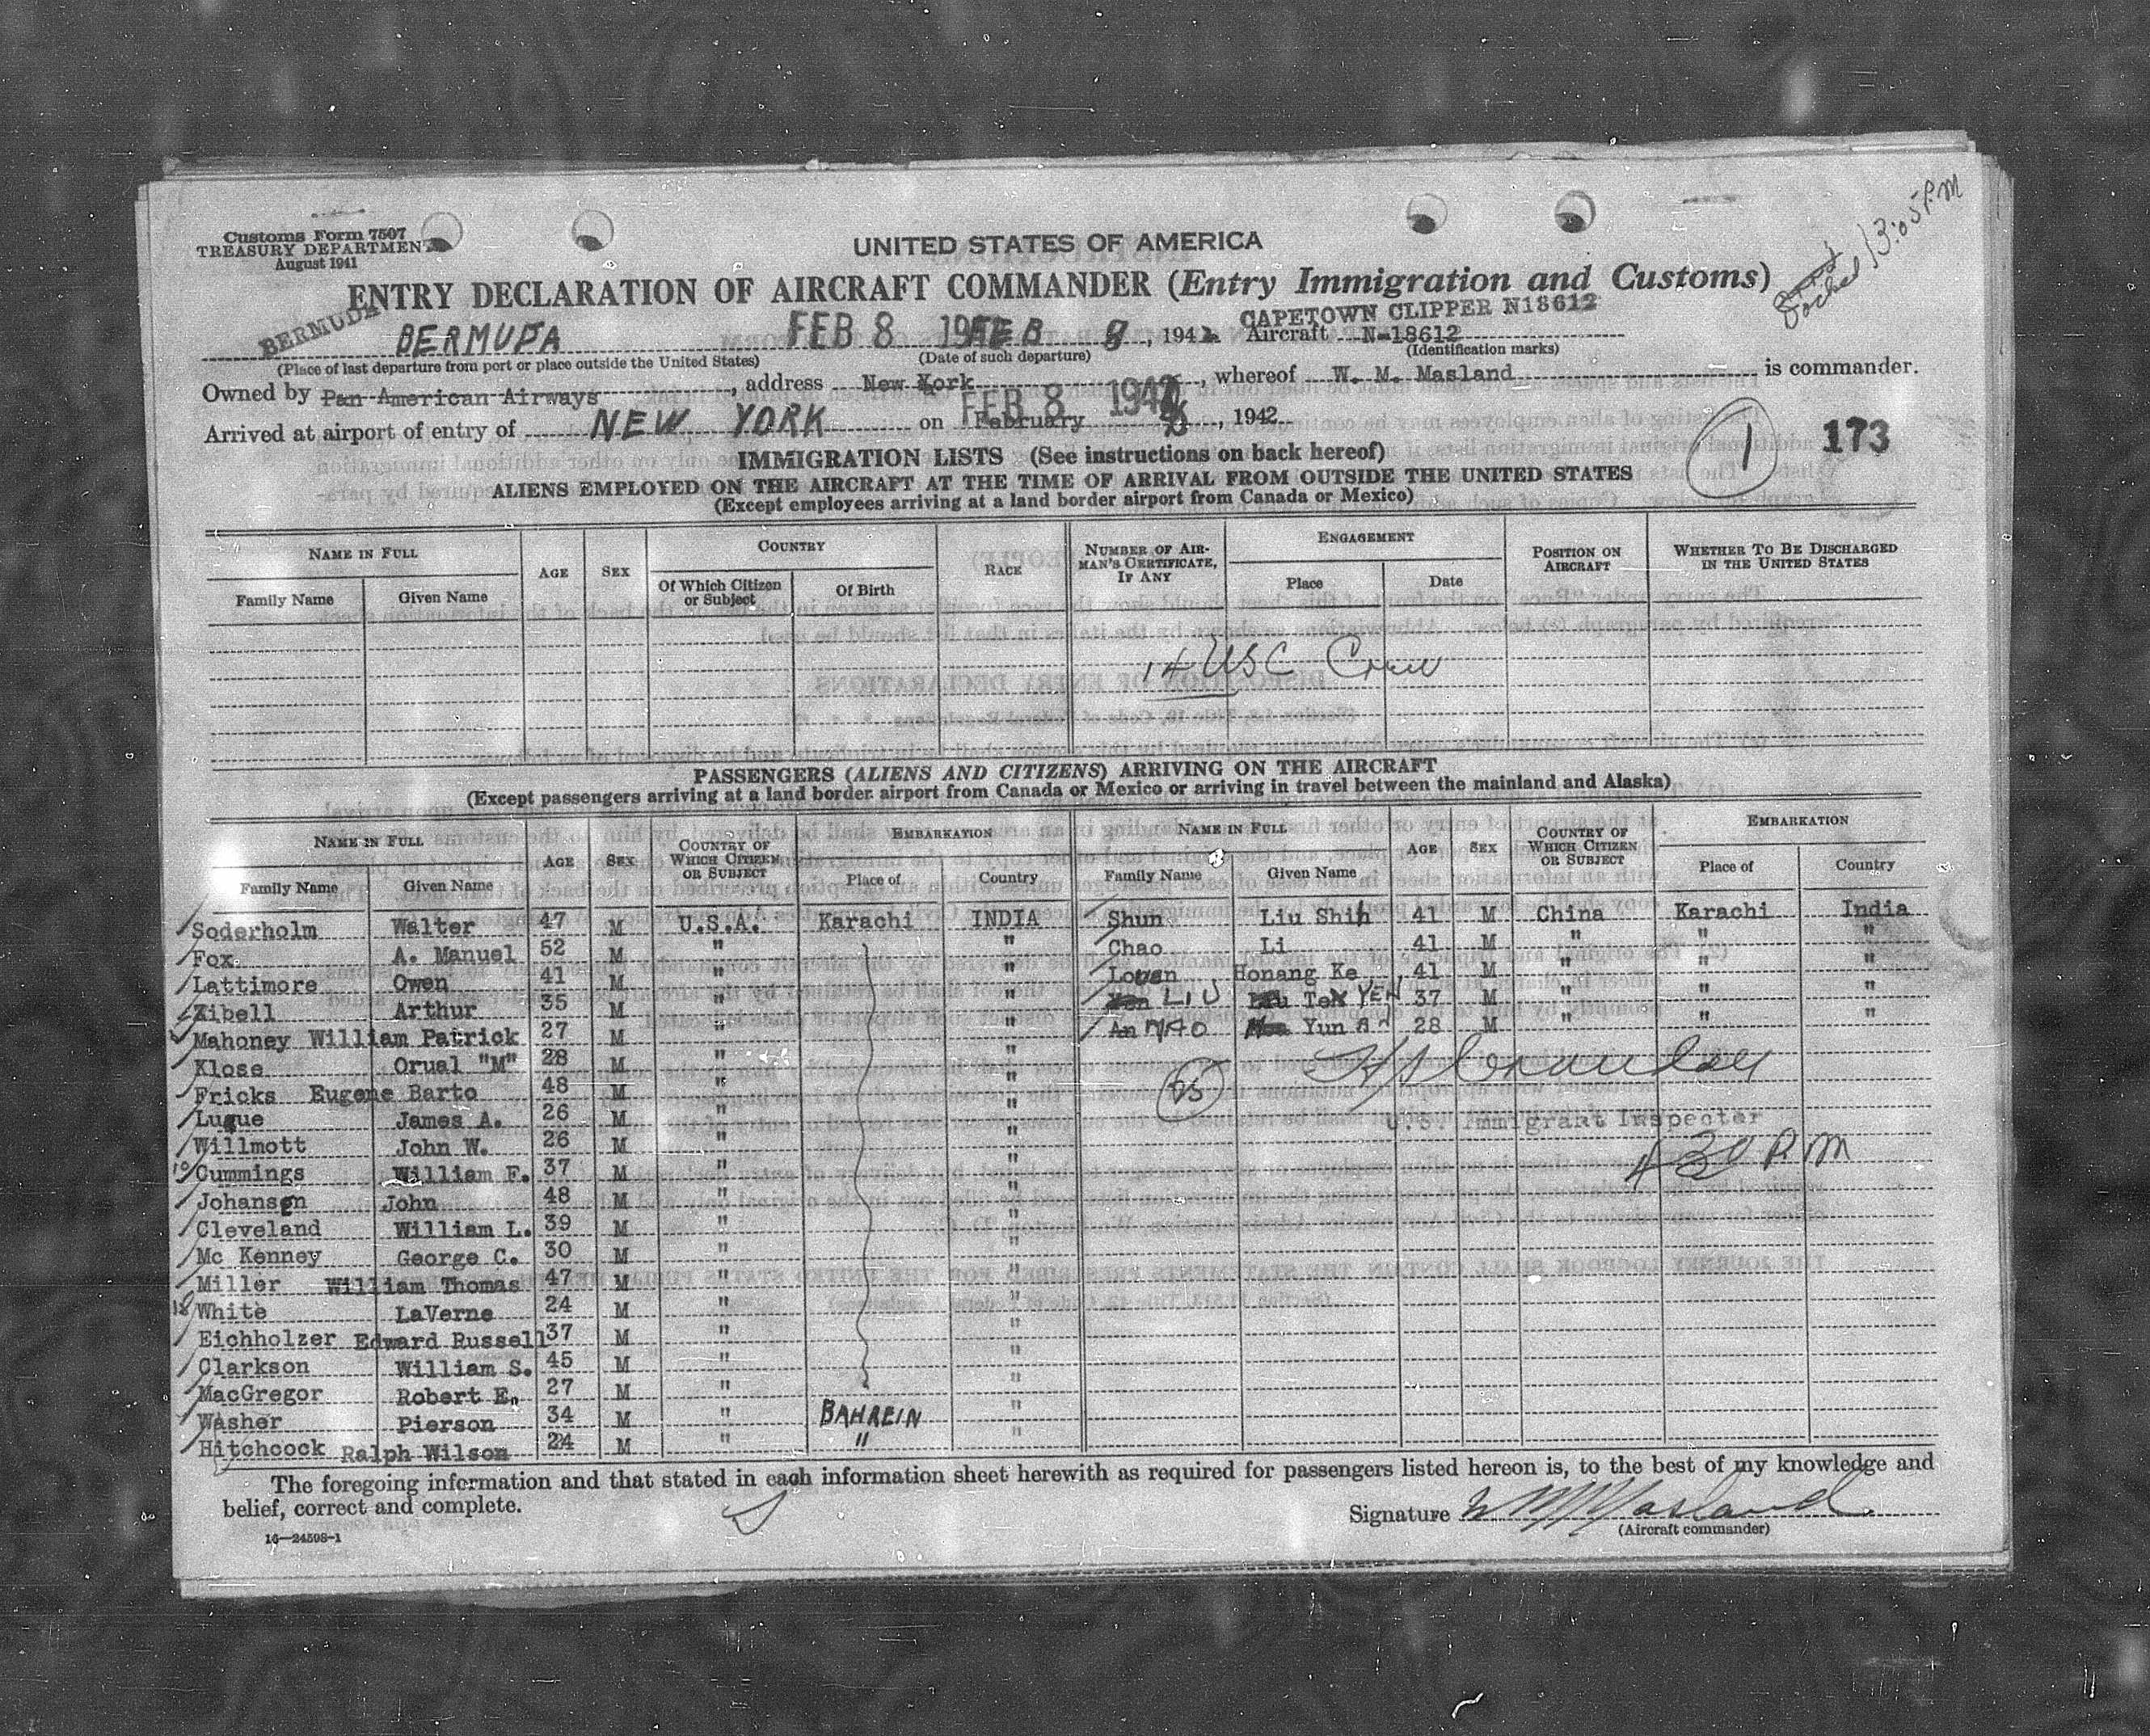 Customs Form 7507
TREASURY DEPARTMENT
August 1941
UNITED STATES OF AMERICA
3:05 P.M
ENTRY DECLARATION OF AIRCRAFT COMMANDER (Entry Immigration and Customs)
BERMUDA
CAPETOWN CLIPPER N18612
BERMUDA FEB 8 FEB 8, 1942 Aircraft N-18612
(Place of last departure from port or place outside the United States) (Date of such departure) (Identification marks)
Owned by Pan American Airways, address New York, whereof W. M. Masland is commander.
FEB 8 1942
Arrived at airport of entry of NEW YORK on February 8, 1942
1 173
IMMIGRATION LISTS (See instructions on back hereof)
ALIENS EMPLOYED ON THE AIRCRAFT AT THE TIME OF ARRIVAL FROM OUTSIDE THE UNITED STATES
(Except employees arriving at a land border airport from Canada or Mexico)
NAME IN FULL AGE SEX COUNTRY RACE NUMBER OF AIRMAN'S CERTIFICATE, IF ANY ENGAGEMENT POSITION ON AIRCRAFT WHETHER TO BE DISCHARGED IN THE UNITED STATES
Family Name Given Name Of Which Citizen or Subject Of Birth Place Date
14 USC Crew
PASSENGERS (ALIENS AND CITIZENS) ARRIVING ON THE AIRCRAFT
(Except passengers arriving at a land border airport from Canada or Mexico or arriving in travel between the mainland and Alaska)
NAME IN FULL AGE SEX COUNTRY OF WHICH CITIZEN OR SUBJECT EMBARKATION NAME IN FULL AGE SEX COUNTRY OF WHICH CITIZEN OR SUBJECT EMBARKATION
Family Name Given Name Place of Country Family Name Given Name Place of Country
Soderholm Walter 47 M U.S.A. Karachi INDIA Shun Liu Shih 41 M China Karachi India
Fox A. Manuel 52 M " " Chao Li 41 M " " "
Lattimore Owen 41 M " " Honang Ke 41 M " " "
Zibell Arthur 35 M " " LIU YEH 37 M " " "
Mahoney William Patrick 27 M " " MAO Yun 28 M " " "
Klose Orual "M" 28 M " "
Fricks Eugene Barto 48 M " " 25
Lugue James A. 26 M " " U.S. Immigrant Inspector
Willmott John W. 26 M " "
10 Cummings William F. 37 M " " 4 30 P.M
Johansen John 48 M " "
Cleveland William L. 39 M " "
Mc Kenney George C. 30 M " "
Miller William Thomas 47 M " "
White LaVerne 24 M " "
Eichholzer Edward Russell 37 M " "
Clarkson William S. 45 M " "
MacGregor Robert E. 27 M " "
Washer Pierson 34 M " BAHREIN "
Hitchcock Ralph Wilson 24 M " " "
The foregoing information and that stated in each information sheet herewith as required for passengers listed hereon is, to the best of my knowledge and
belief, correct and complete.
Signature W M Masland
(Aircraft commander)
16—24598-1